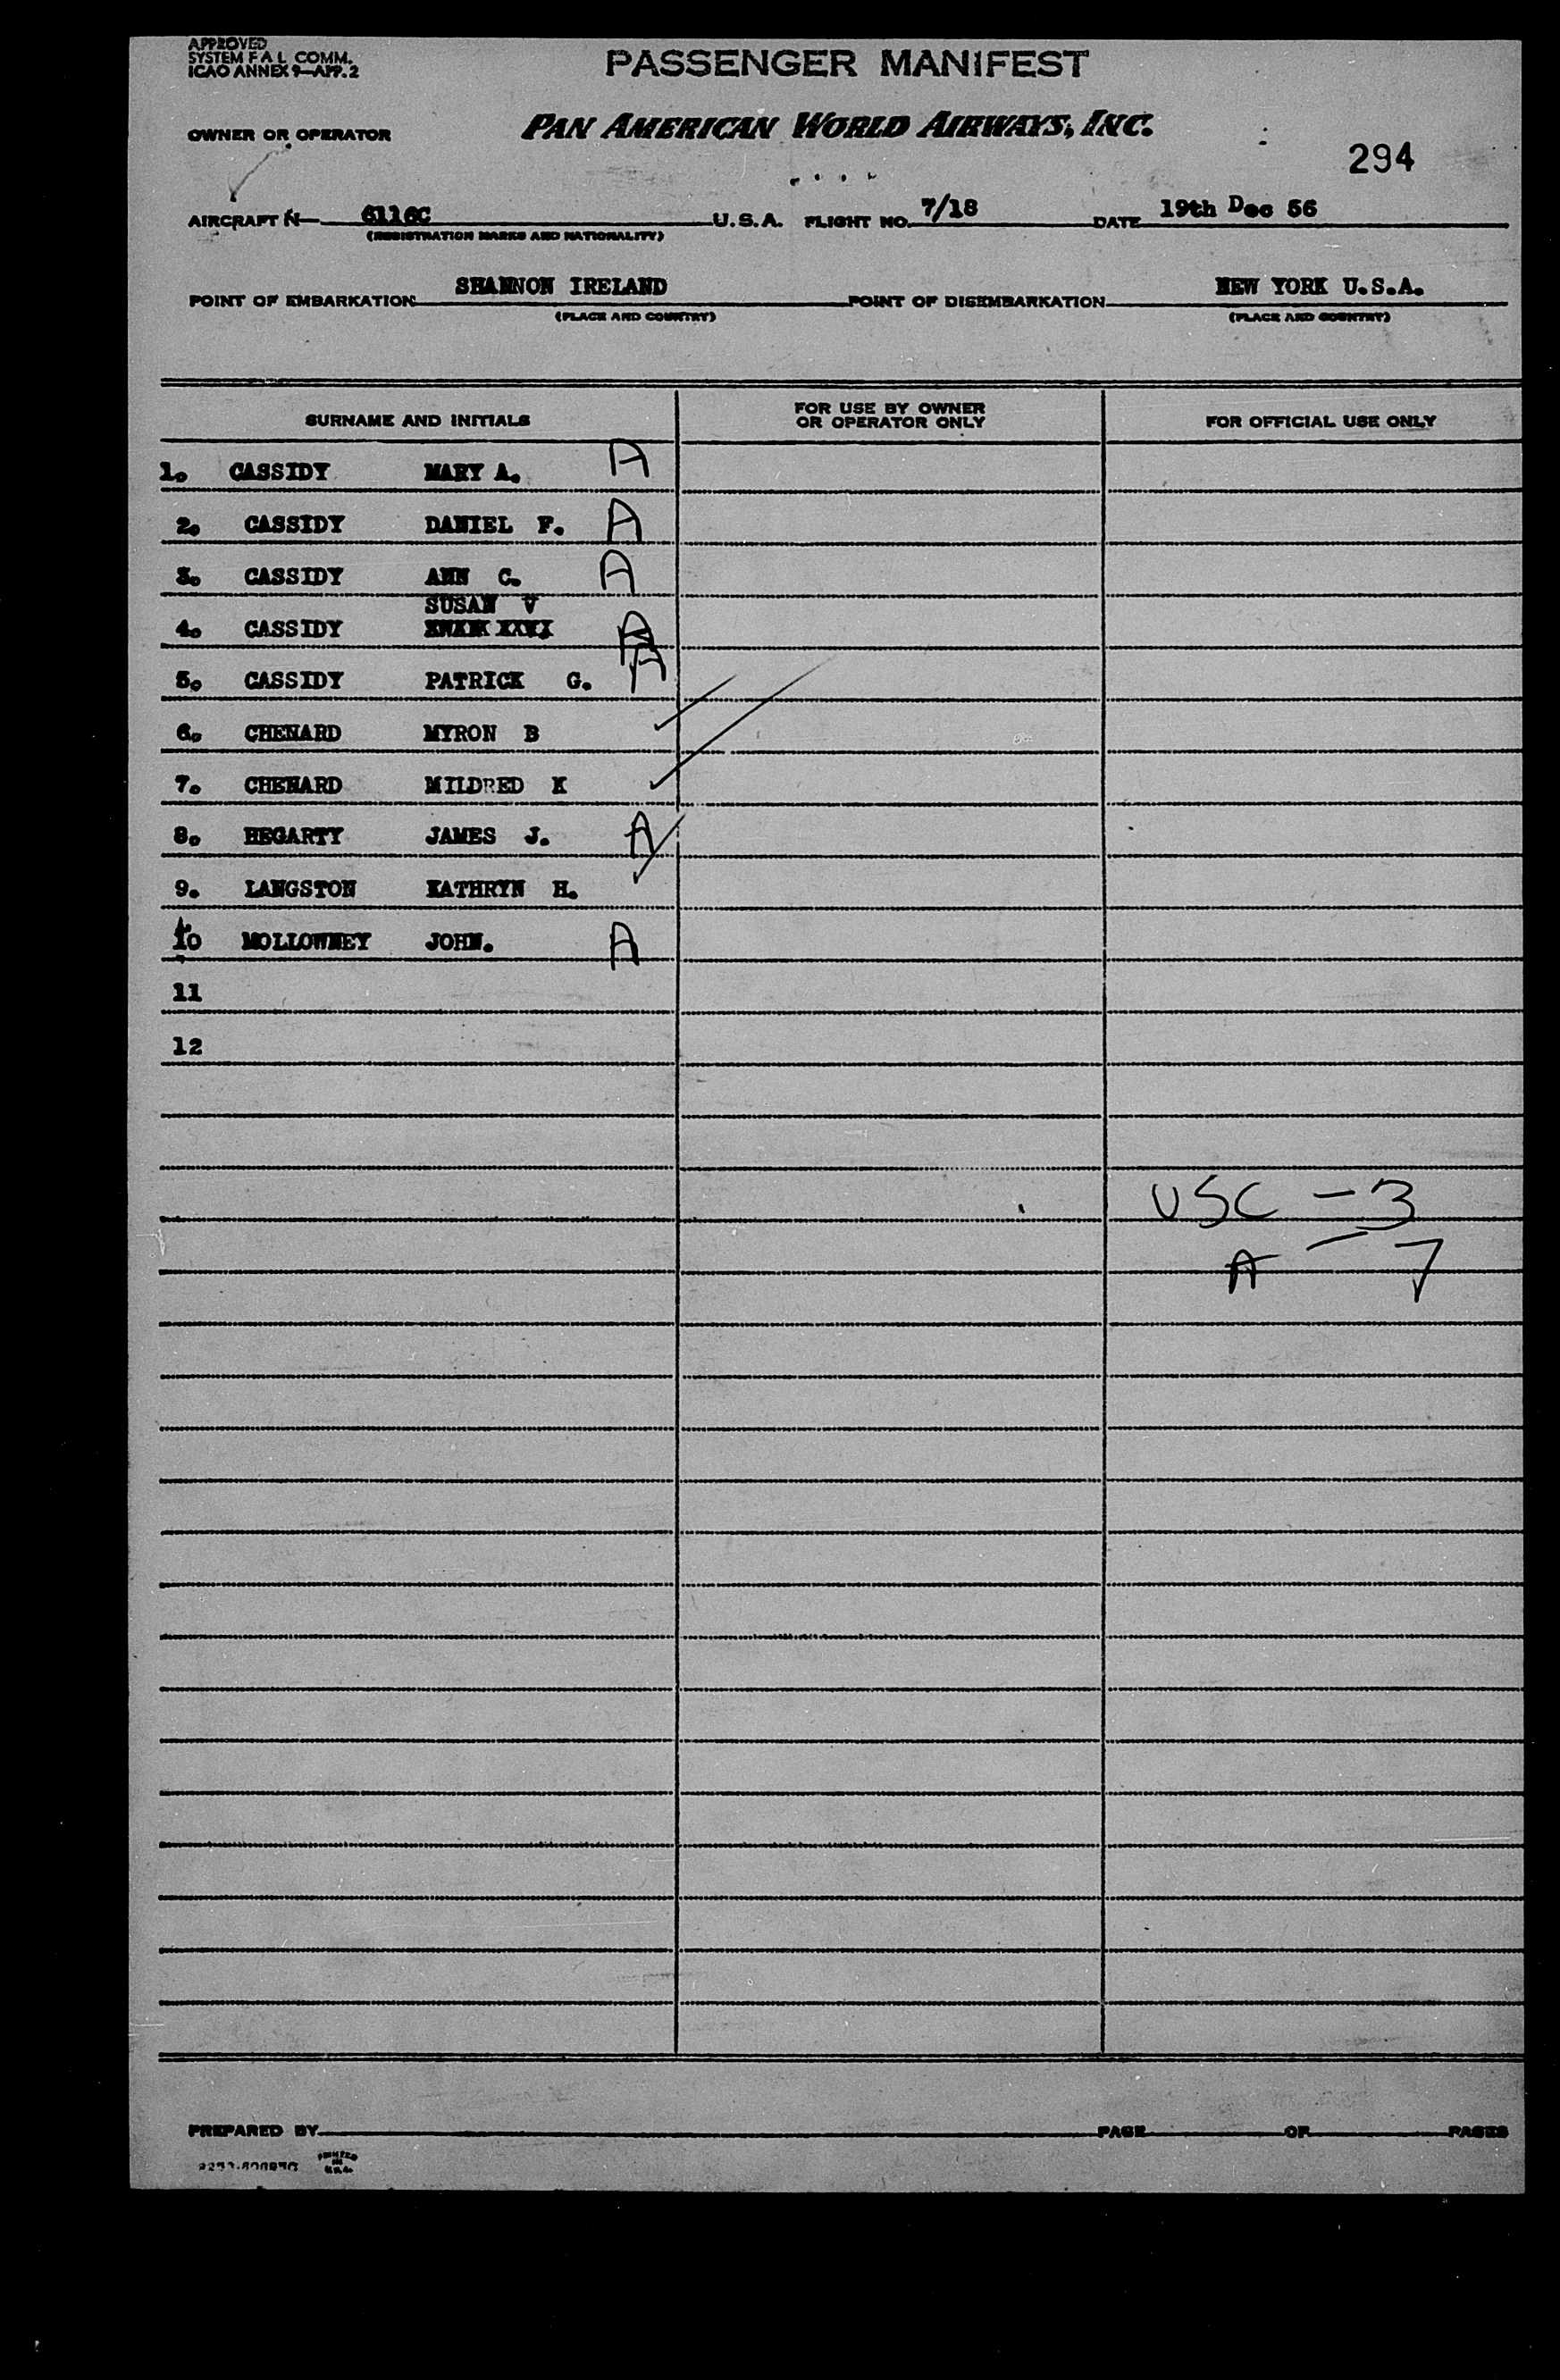 APPROVED
SYSTEM F A L COMM.
ICAO ANNEX 9—APP. 2
PASSENGER MANIFEST
OWNER OR OPERATOR
PAN AMERICAN WORLD AIRWAYS, INC.
294
AIRCRAFT N— 6116C U.S.A. FLIGHT NO. 7/18 DATE 19th Dec 56
(REGISTRATION MARKS AND NATIONALITY)
POINT OF EMBARKATION SHANNON IRELAND POINT OF DISEMBARKATION NEW YORK U.S.A.
(PLACE AND COUNTRY) (PLACE AND COUNTRY)
SURNAME AND INITIALS
FOR USE BY OWNER
OR OPERATOR ONLY
FOR OFFICIAL USE ONLY
1. CASSIDY MARY A. A
2. CASSIDY DANIEL F. A
3. CASSIDY ANN C. A
SUSAN V
4. CASSIDY A
5. CASSIDY PATRICK G. A
6. CHENARD MYRON B
7. CHENARD MILDRED K
8. HEGARTY JAMES J. A
9. LANGSTON KATHRYN H.
10 MOLLOWNEY JOHN. A
11
12
USC — 3
A — 7
PREPARED BY PAGE OF PAGES
PRINTED
IN
U.S.A.